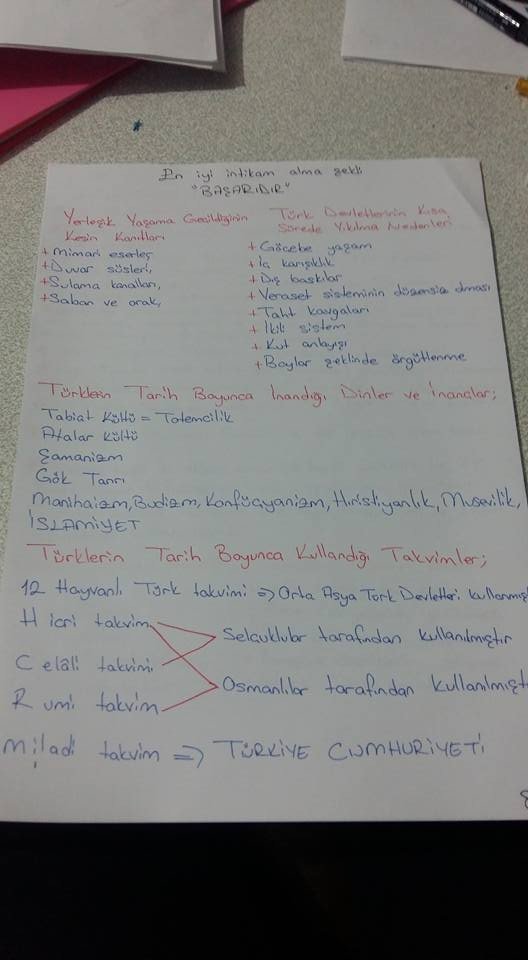 En iyi intikam alma şekli
"BAŞARIDIR"
Yerleşik Yaşama Gecildiğinin
Kesin Kanıtları
+Mimari eserler,
+Duvar süsleri,
+Sulama kanalları,
+Saban ve orak,
Türk Devletlerinin Kısa
Sürede Yıkılma Nedenleri
+Göçebe yaşam
+İç karışıklık
+Dış baskılar
+Veraset sisteminin düzensiz olması
+Taht kavgaları
+İkili sistem
+Kut anlayışı
+Boylar şeklinde örgütlenme
Türklerin Tarih Boyunca İnandığı Dinler ve İnançlar;
Tabiat Kültü = Totemcilik
Atalar Kültü
Şamanizm
Gök Tanrı
Manihaizm, Budizm, Konfüçyanizm, Hıristiyanlık, Musevilik,
İSLAMİYET
Türklerin Tarih Boyunca Kullandığı Takvimler;
12 Hayvanlı Türk takvimi => Orta Asya Türk Devletleri kullanmış
Hicri takvim
Selçuklular tarafından kullanılmıştır
Celâli takvimi
Osmanlılar tarafından kullanılmışt
Rumi takvim
Miladi takvim => TÜRKİYE CUMHURİYETİ